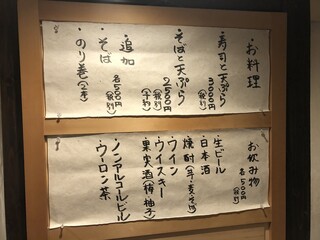 お料理
・寿司と天ぷら
3000円
(税別)
・そばと天ぷら
2500円
(税別)
(予約)
追加
・そば
・のり巻(2本)
各500円
(税別)
お飲み物
各500円
(税別)
・生ビール
・日本酒
・焼酎(芋・麦・そば)
・ワイン
・ウイスキー
・果実酒(梅・柚子)
・ノンアルコールビール
・ウーロン茶